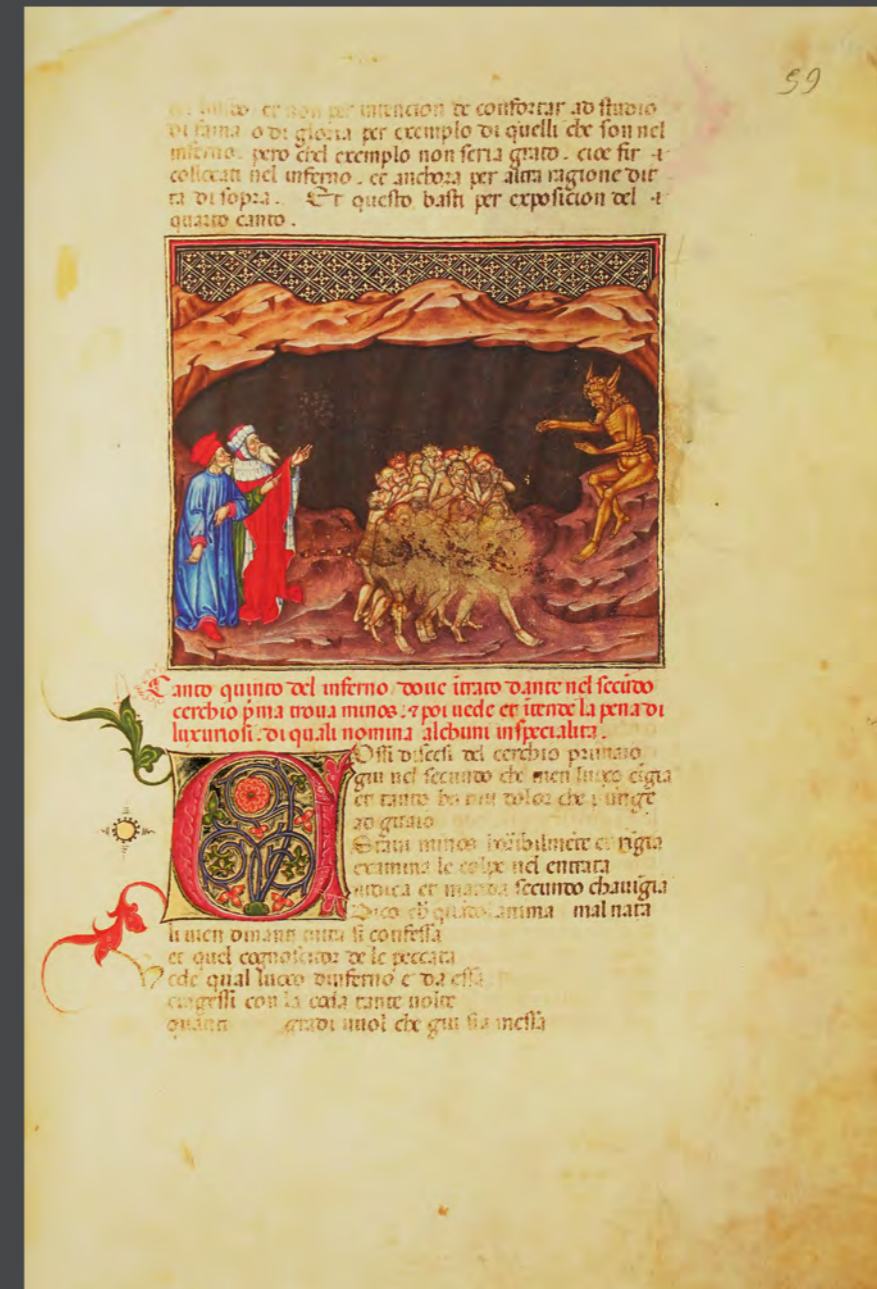 59
et non per intencion de confortar ad studio
di fama o di gloria per exemplo di quelli che son nel
inferno. pero chel exemplo non seria grato. cioe fir
collocati nel inferno. et anchora per altra ragione dit
ta di sopra. Et questo basti per exposicion del
quarto canto.
Canto quinto del inferno doue ītrato dante nel secūdo
cerchio p̄ma troua minos. ⁊ poi uede et ītende la pena di
luxuriosi. di quali nomina alchuni in specialita.
Ossi discesi del cerchio primaio
giu nel secundo che men luoco cigia
et tanto ha piu dolor che punge
ad guaio
Stauui minos horibilmēte et rigia
examina le colpe nel entrata
iudica et manda secundo chauigia
Dico ch̄ quādo anima mal nata
li uien dinanti tutta si confessa
et quel cognoscitor de le peccata
uede qual luoco dinferno e da essa
cingessi con la coda tante uolte
gradi uuol che giu sia messa